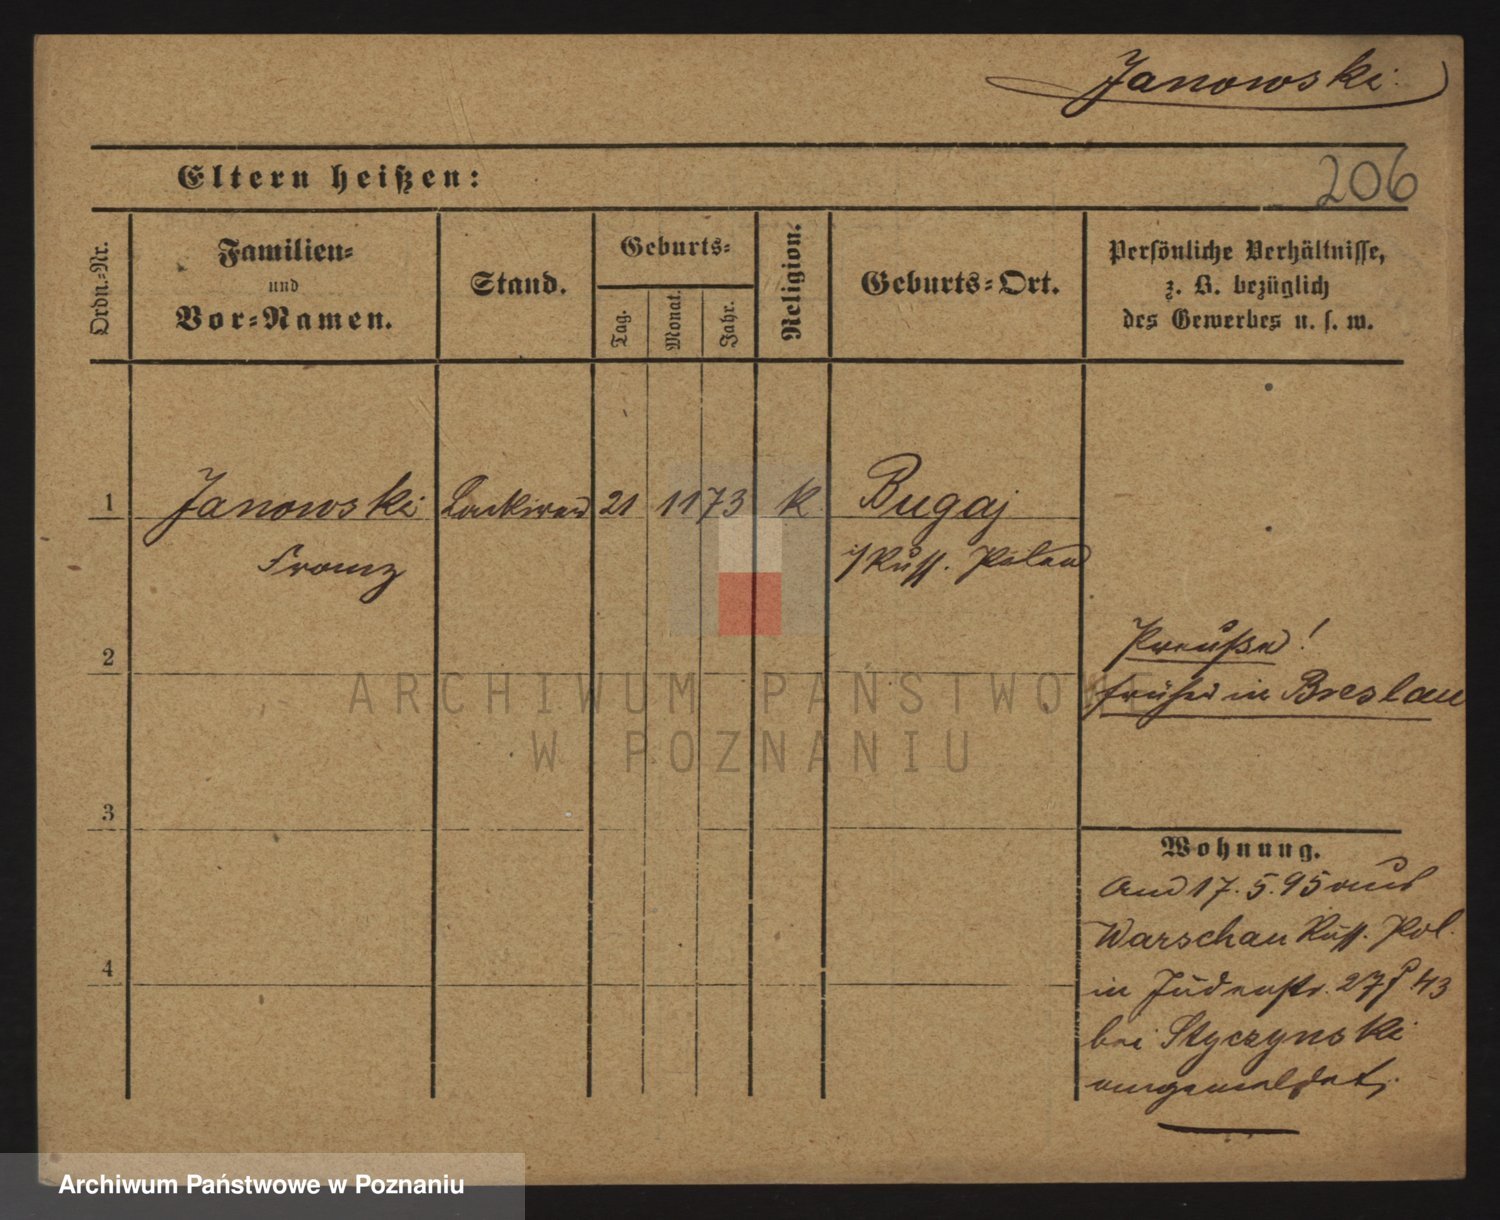 Janowski
206
Eltern heißen:
Ordn.-Nr.
Familien-
und
Vor-Namen.
Stand.
Geburts-
Tag.
Monat.
Jahr.
Religion.
Geburts-Ort.
Persönliche Verhältnisse,
z. B. bezüglich
des Gewerbes u. s. w.
1 Janowski Lackierer 21 11 73 K. Bugaj
Franz i/Russ. Polen
2
Preuße!
früher in Breslau
3
Wohnung.
Am 17. 5. 95 aus
Warschau Russ. Pol.
in Judenstr. 27
bei Styczynski
angemeldet.
4
ARCHIWUM PAŃSTWOWE
W POZNANIU
Archiwum Państwowe w Poznaniu